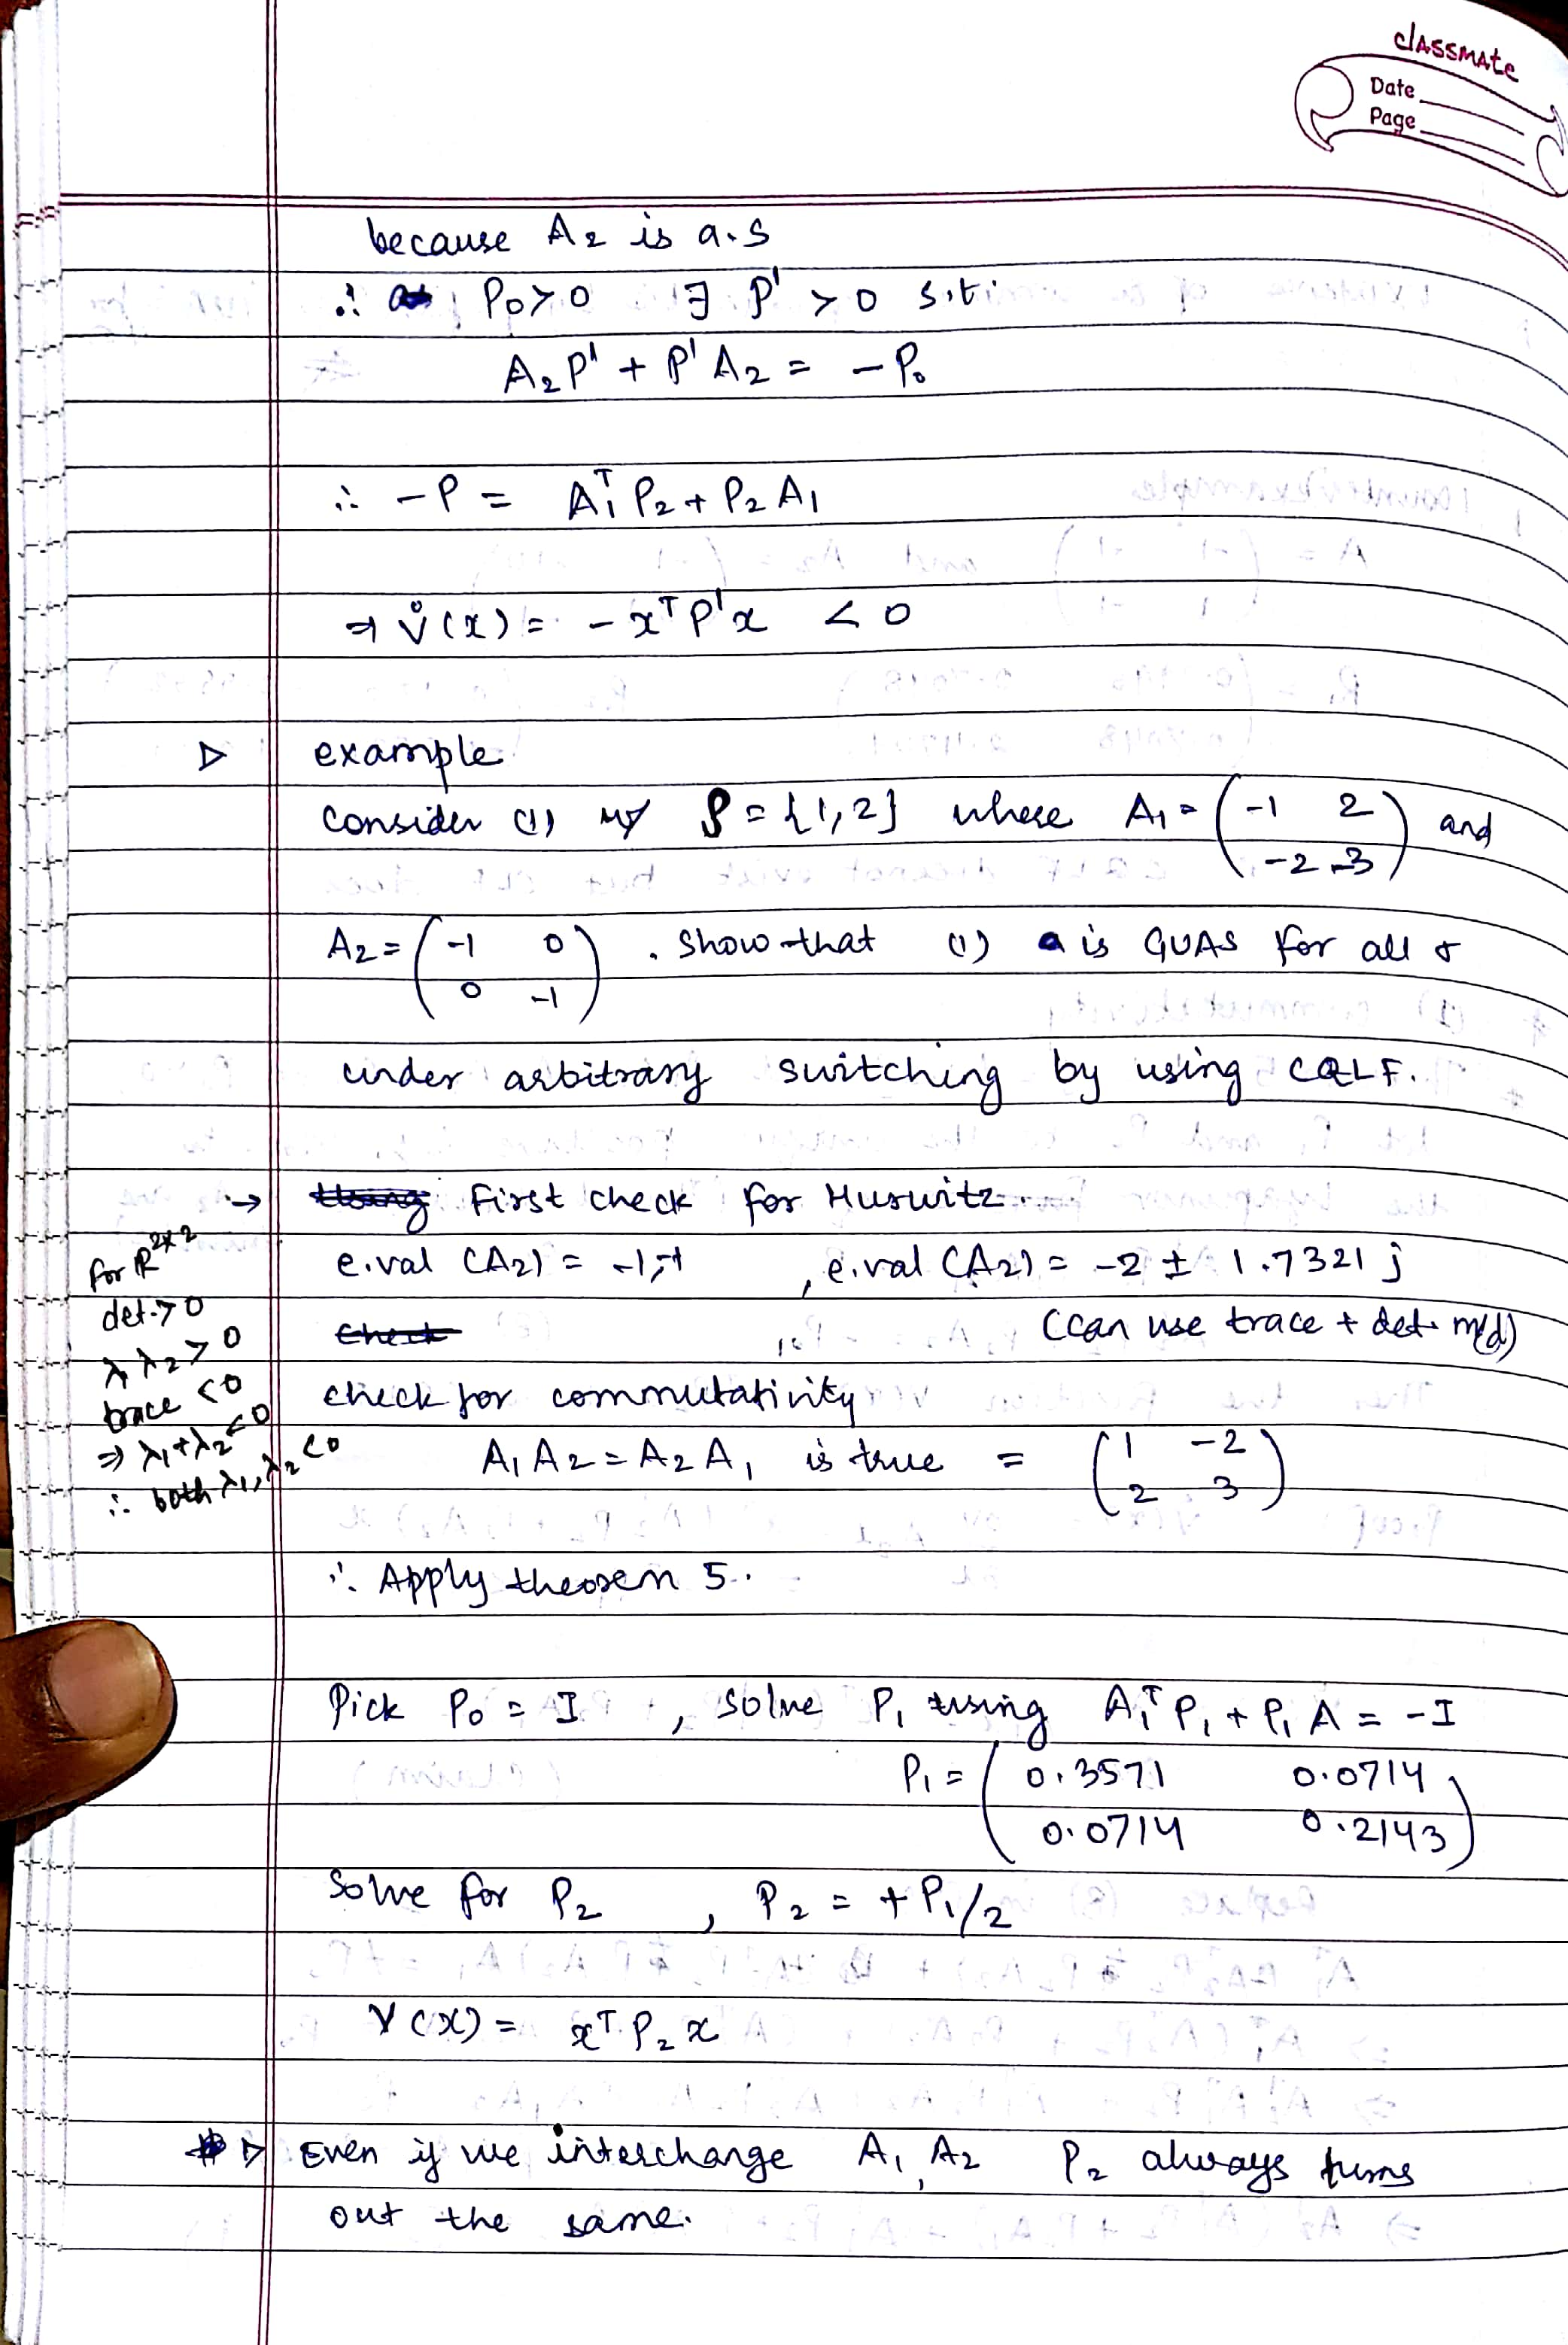 classmate
Date
Page
because A₂ is a.s
∴ P₀>0 ∃ P' > 0 s.t.
A₂P' + P'A₂ = -P₀
∴ -P = A₁ᵀP₂ + P₂A₁
⇒ V̇(x) = -xᵀP'x < 0
▷ example
consider (1) w/ P = {1,2} where A₁ = (-1 2
-2 -3) and
A₂ = (-1 0
0 -1) . Show that (1) is GUAS for all σ
under arbitrary switching by using CQLF.
→ First check for Hurwitz.
e.val (A₂) = -1,-1 , e.val (A₂) = -2 ± 1.7321 j
(can use trace + det. m/d)
for ℝ²ˣ²
det. > 0
λ₁λ₂ > 0
trace < 0
⇒ λ₁+λ₂ < 0
∴ both λ₁,λ₂ < 0
check for commutativity
A₁A₂ = A₂A₁ is true = (1 -2
2 3)
∴ Apply theorem 5.
Pick P₀ = I , solve P₁ using A₁ᵀP₁ + P₁A = -I
P₁ = (0.3571 0.0714
0.0714 0.2143)
solve for P₂ , P₂ = +P₁/2
V(x) = xᵀP₂x
▷ Even if we interchange A₁, A₂ P₂ always turns
out the same.